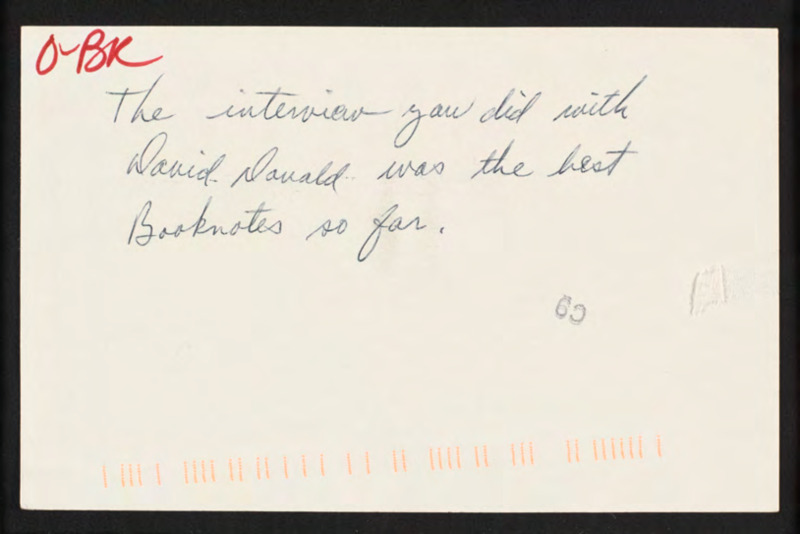 O-BK
The interview you did with
David Donald was the best
Booknotes so far.